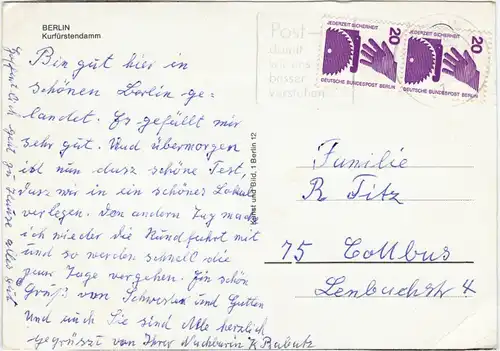 BERLIN
Kurfürstendamm
Bin gut hier in
schönen Berlin ge-
landet. Es gefällt mir
sehr gut. Und übermorgen
ist nun dasz schöne Fest,
dasz wir in ein schönes Lokal
verlegen. Den andern Tag mache
ich wieder die Rundfahrt mit
und so werden schnell die
paar Tage vergehen. Ein schön
Gruß von Schwester und Gatten
Und auch Sie sind Alle herzlich
gegrüsst von Ihrer Nachbarin K. Babutz
gut zu Hause alles gut
Kunst und Bild, 1 Berlin 12
Post
damit
wir uns
besser
verstehen
JEDERZEIT SICHERHEIT
20
DEUTSCHE BUNDESPOST BERLIN
JEDERZEIT SICHERHEIT
20
DEUTSCHE BUNDESPOST BERLIN
Familie
R. Titz
75 Cottbus
Lenbachstr 4